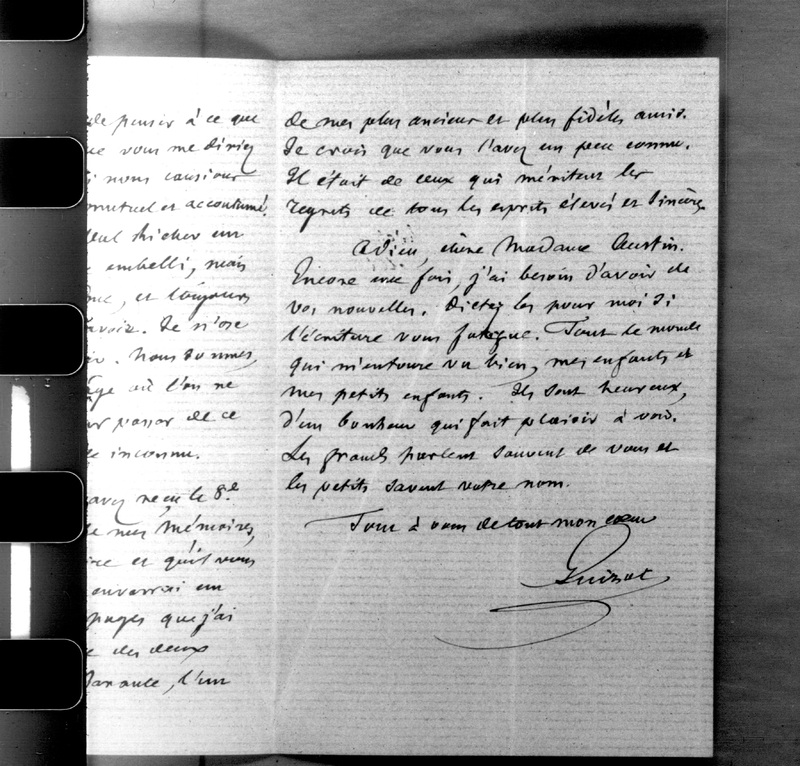 de penser à ce que
vous me diriez
nous causions
mutuel et accoutumé.
un
embelli, mais
et toujours
Je n'ose
Nous sommes,
âge où l'on ne
passer de ce
inconnu.
avez reçu le 8e
de mes Mémoires,
et qu'il vous
enverrai un
pages que j'ai
des deux
Barante, l'un
de mes plus anciens et plus fidèles amis.
Je crois que vous l'avez un peu connu.
Il était de ceux qui méritent les
regrets de tous les esprits élevés et sincères.
Adieu, chère Madame Austin.
Encore une fois, j'ai besoin d'avoir de
vos nouvelles. Dictez les pour moi si
l'écriture vous fatigue. Tout le monde
qui m'entoure va bien, mes enfants et
mes petits enfants. Ils sont heureux,
d'un bonheur qui fait plaisir à voir.
Les grands parlent souvent de vous et
les petits savent votre nom.
Tout à vous de tout mon cœur
Guizot